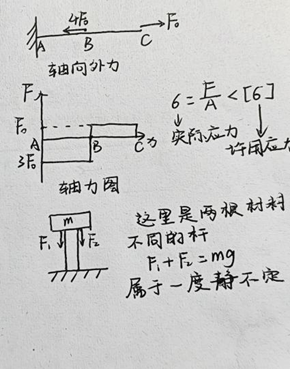 4F₀ F₀
A B C
轴向外力
F
F₀
A B C x
3F₀
轴力图
6 = F/A < [6]
实际应力 许用应力
m
F₁ F₂
这里是两根材料
不同的杆
F₁ + F₂ = mg
属于一度静不定